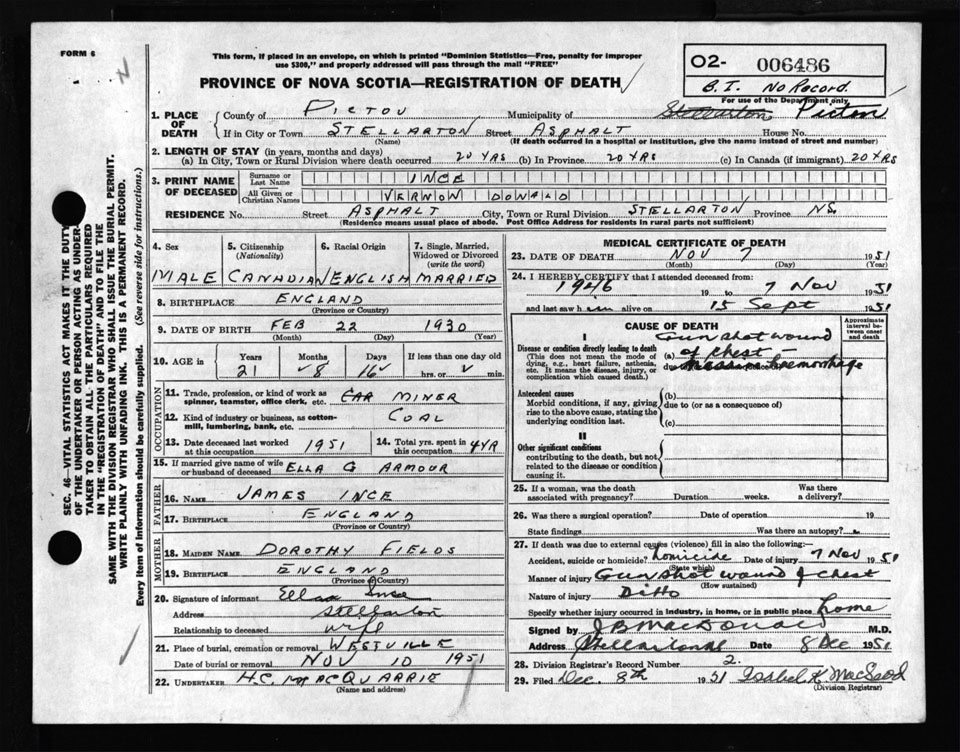 FORM 6
This form, if placed in an envelope, on which is printed "Dominion Statistics—Free, penalty for improper
use $300," and properly addressed will pass through the mail "FREE"
PROVINCE OF NOVA SCOTIA—REGISTRATION OF DEATH
O2- 006486
B. I. No Record.
For use of the Department only
SEC. 46—VITAL STATISTICS ACT MAKES IT THE DUTY
OF THE UNDERTAKER OR PERSON ACTING AS UNDER-
TAKER TO OBTAIN ALL THE PARTICULARS REQUIRED
IN THE "REGISTRATION OF DEATH" AND TO FILE THE
SAME WITH THE DIVISION REGISTRAR WHO SHALL ISSUE THE BURIAL PERMIT.
WRITE PLAINLY WITH UNFADING INK. THIS IS A PERMANENT RECORD.
Every item of information should be carefully supplied. (See reverse side for instructions.)
1. PLACE OF DEATH County of PICTOU Municipality of Stellarton Pictou
If in City or Town STELLARTON Street ASPHALT House No.
(Name) (If death occurred in a hospital or institution, give the name instead of street and number)
2. LENGTH OF STAY (in years, months and days)
(a) In City, Town or Rural Division where death occurred 20 YRS (b) In Province 20 YRS (c) In Canada (if immigrant) 20 YRS
3. PRINT NAME OF DECEASED Surname or Last Name INCE
All Given or Christian Names VERNON DONALD
RESIDENCE No. Street ASPHALT City, Town or Rural Division STELLARTON Province N.S.
(Residents means usual place of abode. Post Office Address for residents in rural parts not sufficient)
4. Sex 5. Citizenship (Nationality) 6. Racial Origin 7. Single, Married, Widowed or Divorced (write the word)
MALE CANADIAN ENGLISH MARRIED
8. BIRTHPLACE ENGLAND
(Province or Country)
9. DATE OF BIRTH FEB 22 1930
(Month) (Day) (Year)
10. AGE in Years Months Days If less than one day old
21 8 16 hrs. or min.
OCCUPATION
11. Trade, profession, or kind of work as spinner, teamster, office clerk, etc. CAR MINER
12. Kind of industry or business, as cotton-mill, lumbering, bank, etc. COAL
13. Date deceased last worked at this occupation 1951 14. Total yrs. spent in 4YR
15. If married give name of wife or husband of deceased ELLA G ARMOUR
FATHER
16. NAME JAMES INCE
17. BIRTHPLACE ENGLAND
(Province or Country)
MOTHER
18. MAIDEN NAME DOROTHY FIELDS
19. BIRTHPLACE ENGLAND
(Province or Country)
20. Signature of informant Ella Ince
Address Stellarton
Relationship to deceased wife
21. Place of burial, cremation or removal WESTVILLE
Date of burial or removal NOV 10 1951
22. UNDERTAKER H.C. MACQUARRIE
(Name and address)
MEDICAL CERTIFICATE OF DEATH
23. DATE OF DEATH NOV 7 1951
(Month) (Day) (Year)
24. I HEREBY CERTIFY that I attended deceased from:
1946 19 to 7 Nov 1951
and last saw him alive on 15 Sept 1951
CAUSE OF DEATH
Approximate interval between onset and death
I
Disease or condition directly leading to death (a) Gun shot wound of chest
(This does not mean the mode of dying, e.g., heart failure, asthenia, etc. It means the disease, injury, or complication which caused death.)
due to hemorrhage
Antecedent causes
Morbid conditions, if any, giving rise to the above cause, stating the underlying condition last.
(b)
due to (or as a consequence of)
(c)
II
Other significant conditions
contributing to the death, but not related to the disease or condition causing it.
25. If a woman, was the death associated with pregnancy? Duration weeks. Was there a delivery?
26. Was there a surgical operation? Date of operation 19
State findings Was there an autopsy?
27. If death was due to external causes (violence) fill in also the following:
Accident, suicide or homicide? homicide Date of injury 7 Nov 1951
(State which)
Manner of injury Gun shot wound of chest
(How sustained)
Nature of injury Ditto
Specify whether injury occurred in industry, in home, or in public place home
Signed by J B MacDonald M.D.
Address Stellarton NS Date 8 Dec 1951
28. Division Registrar's Record Number 2.
29. Filed Dec. 8th 1951 Isabel K. MacLeod
(Division Registrar)